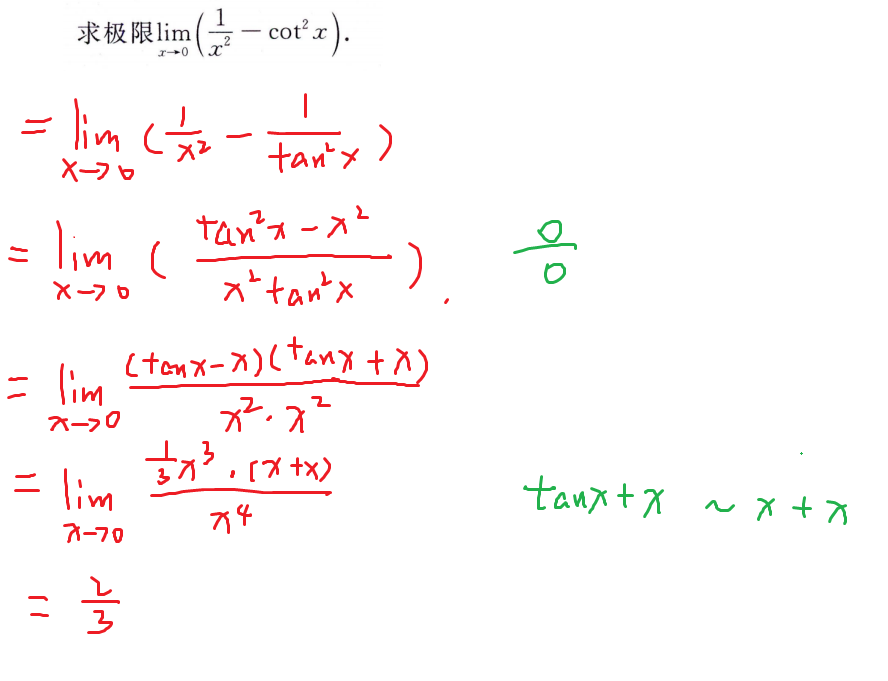 求极限lim x→0 (1/x² − cot² x).
= lim x→0 (1/x² − 1/tan²x)
= lim x→0 (tan²x − x² / x² tan²x). 0/0
= lim x→0 (tanx−x)(tanx+x) / x²·x²
= lim x→0 1/3 x³·(x+x) / x⁴ tanx+x ~ x+x
= 2/3